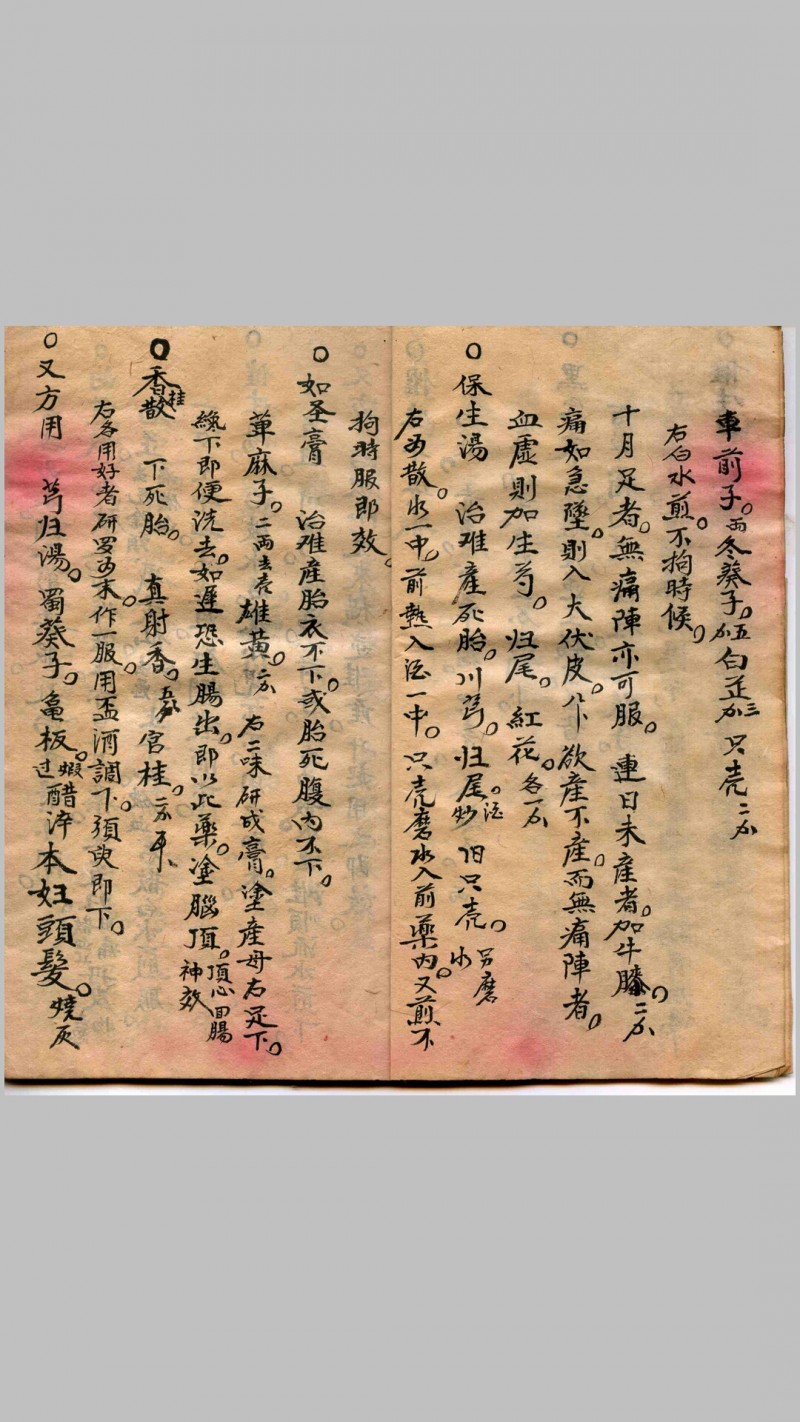 車前子。両冬葵子。五分白芷三分只壳二分
右白水煎。不拘時候。
十月足者。無痛陣亦可服。連日未産者。加牛膝。二分
痛如急墜。則入大伏皮。八卜欲産不産。而無痛陣者。
血虚則加生芍。归尾。紅花。各一分
○保生湯 治难産死胎。川芎。归尾。酒炒 旧只壳。另磨水
右为散。水一中。煎熟入酒一中。只壳磨水入前藥内。又煎不
拘時服即效。
○如圣膏 治难産胎衣不下。或胎死腹内不下。
萆麻子。二両去壳雄黄。二分 右二味研成膏。塗産母右足下。
纔下即便洗去。如遲恐生腸出。即以此藥。塗腦頂。頂心回腸神效
○香桂散 下死胎。真射香。五分官桂。二分
右各用好者研罗为末。作一服。用盃酒調下。須臾即下。
○又方用 芎归湯。蜀葵子。亀板。蝦过醋淬本妇頭髮。燒灰